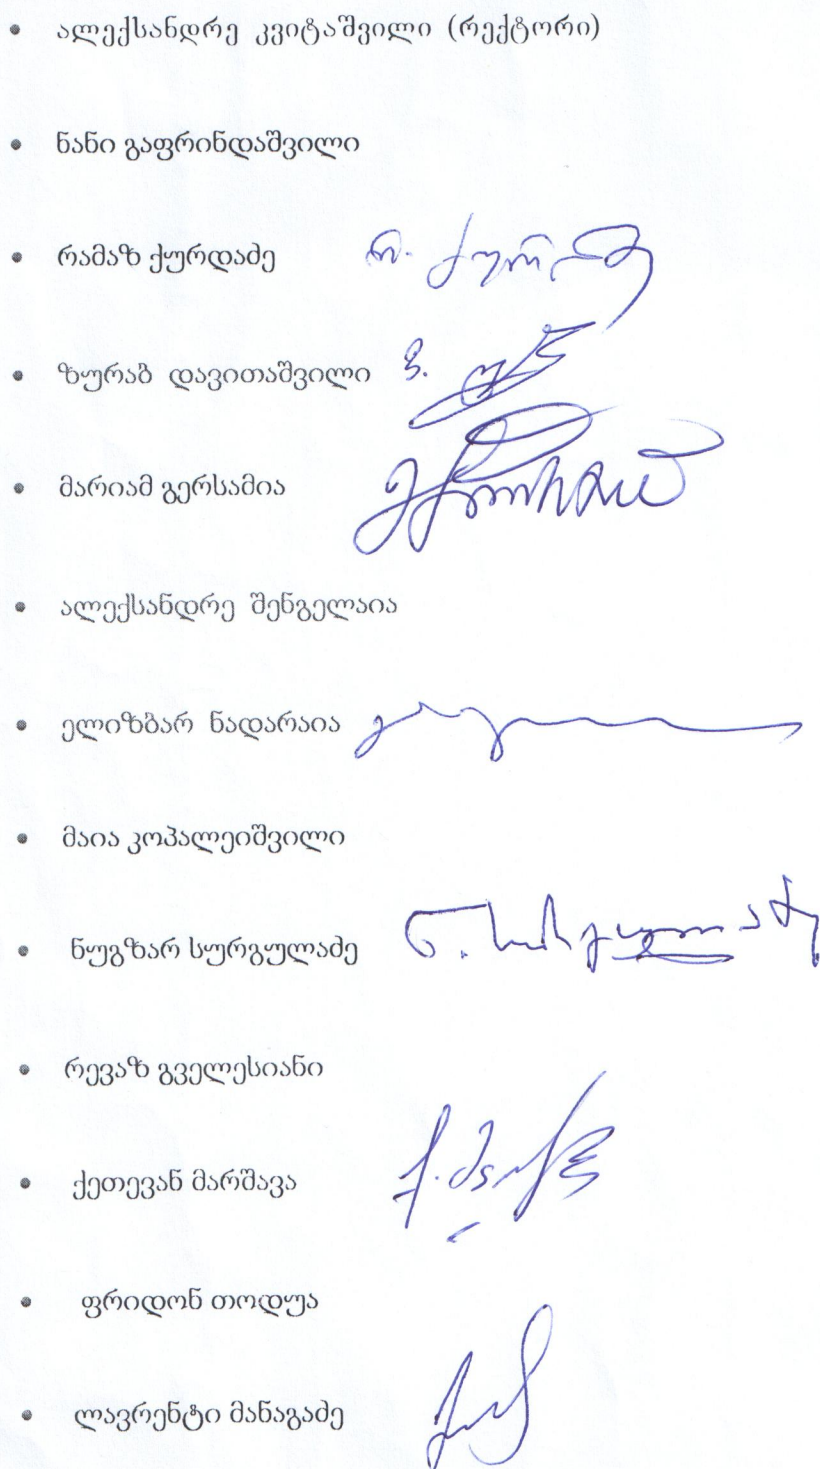 • ალექსანდრე კვიტაშვილი (რექტორი)
• ნანი გაფრინდაშვილი
• რამაზ ქურდაძე
• ზურაბ დავითაშვილი
• მარიამ გერსამია
• ალექსანდრე შენგელაია
• ელიზბარ ნადარაია
• მაია კოპალეიშვილი
• ნუგზარ სურგულაძე
• რევაზ გველესიანი
• ქეთევან მარშავა
• ფრიდონ თოდუა
• ლავრენტი მანაგაძე